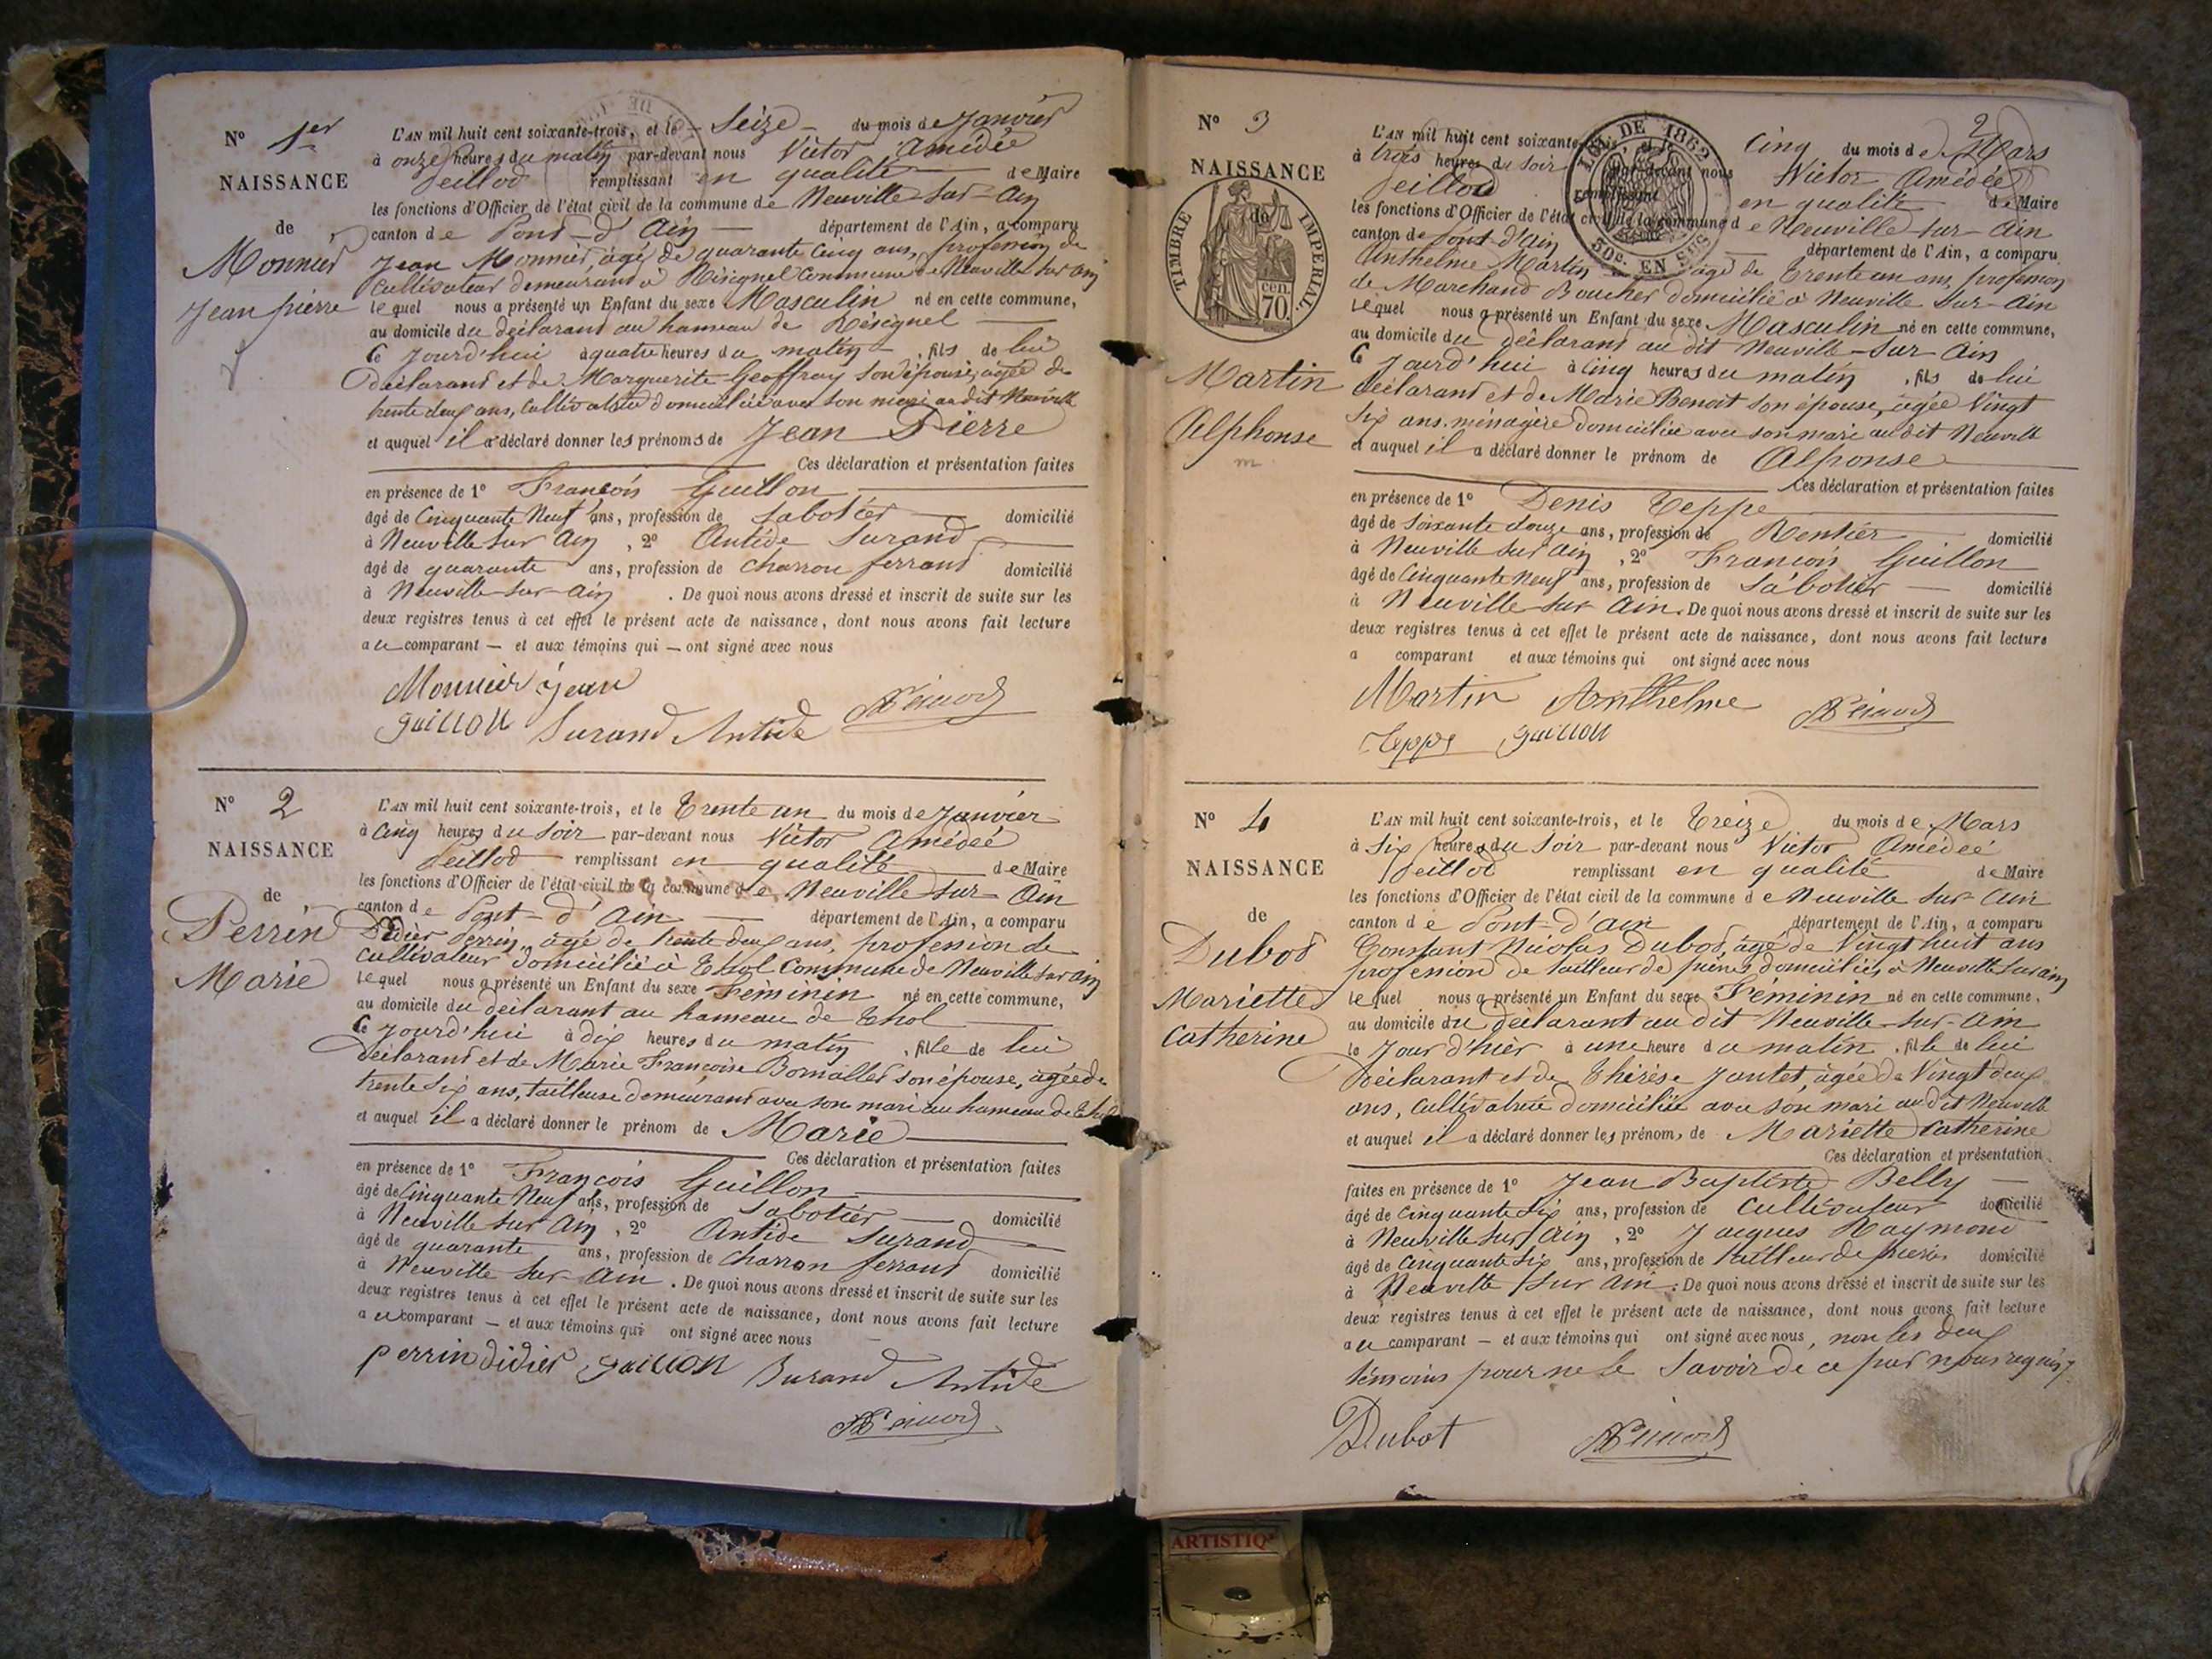 N° 1er
NAISSANCE
de
Monnier
Jean pierre
L'AN mil huit cent soixante-trois, et le Seize du mois de Janvier
à onze heures du matin par-devant nous Victor Amédée
Peillod remplissant en qualité de Maire
les fonctions d'Officier de l'état civil de la commune de Neuville sur Ain
canton de Pont-d'Ain département de l'Ain, a comparu
Jean Monnier, âgé de quarante Cinq ans, profession de
Cultivateur demeurant à Résignel Commune de Neuville sur Ain
lequel nous a présenté un Enfant du sexe Masculin né en cette commune,
au domicile du déclarant au hameau de Résignel
Ce Jourd'hui à quatre heures du matin, fils de lui
Déclarant et de Marguerite Geoffray son épouse, âgée de
trente deux ans, Cultivatrice domiciliée avec son mari au dit Neuville
et auquel il a déclaré donner les prénoms de Jean Pierre
Ces déclaration et présentation faites
en présence de 1° François Guillon
âgé de Cinquante Neuf ans, profession de Sabotier domicilié
à Neuville sur Ain, 2° Antide Durand
âgé de quarante ans, profession de charron ferrant domicilié
à Neuville sur Ain. De quoi nous avons dressé et inscrit de suite sur les
deux registres tenus à cet effet le présent acte de naissance, dont nous avons fait lecture
au comparant — et aux témoins qui — ont signé avec nous
Monnier jean
guillon Durand Antide
N° 2
NAISSANCE
de
Perrin
Marie
L'AN mil huit cent soixante-trois, et le Trente un du mois de Janvier
à Cinq heures du Soir par-devant nous Victor Amédeé
Peillod remplissant en qualité de Maire
les fonctions d'Officier de l'état civil de la commune de Neuville sur Ain
canton de Pont-d'Ain département de l'Ain, a comparu
Didier Perrin, âgé de trente deux ans, profession de
Cultivateur domicilié à Thol Commune de Neuville sur Ain
lequel nous a présenté un Enfant du sexe Féminin né en cette commune,
au domicile du déclarant au hameau de Thol
Ce Jourd'hui à dix heures du matin, fille de lui
Déclarant et de Marie Françoise Bornallet son épouse, âgée de
trente Six ans, tailleuse demeurant avec son mari au hameau de Thol
et auquel il a déclaré donner le prénom de Marie
Ces déclaration et présentation faites
en présence de 1° François Guillon
âgé de Cinquante Neuf ans, profession de Sabotier domicilié
à Neuville sur Ain, 2° Antide Durand
âgé de quarante ans, profession de Charron ferrant domicilié
à Neuville sur Ain. De quoi nous avons dressé et inscrit de suite sur les
deux registres tenus à cet effet le présent acte de naissance, dont nous avons fait lecture
au comparant — et aux témoins qui ont signé avec nous
perrin didier guillon Durand Antide
N° 3
2
NAISSANCE
de
TIMBRE IMPERIAL.
70 cen.
LOI DE 1862
50c. EN SUS
Martin
Alphonse
m
L'AN mil huit cent soixante-trois, et le Cinq du mois de Mars
à trois heures du soir par-devant nous Victor Amédeé
Peillod remplissant en qualité de Maire
les fonctions d'Officier de l'état civil de la commune de Neuville sur Ain
canton de Pont-d'Ain département de l'Ain, a comparu
Anthelme Martin âgé de trente un ans, profession
de Marchand Boucher domicilié à Neuville sur Ain
lequel nous a présenté un Enfant du sexe Masculin né en cette commune,
au domicile du déclarant au dit Neuville-sur-Ain
Ce Jourd'hui à Cinq heures du matin, fils de lui
déclarant et de Marie Benoit son épouse, âgée Vingt
Six ans, ménagère domiciliée avec son mari au dit Neuville
et auquel il a déclaré donner le prénom de Alponse
Ces déclaration et présentation faites
en présence de 1° Denis Teppe
âgé de soixante douze ans, profession de Rentier domicilié
à Neuville sur Ain, 2° François Guillon
âgé de Cinquante Neuf ans, profession de Sabotier domicilié
à Neuville sur Ain. De quoi nous avons dressé et inscrit de suite sur les
deux registres tenus à cet effet le présent acte de naissance, dont nous avons fait lecture
a comparant et aux témoins qui ont signé avec nous
Martin Anthelme
Teppe guillon
N° 4
NAISSANCE
de
Dubot
Mariette
Catherine
L'AN mil huit cent soixante-trois, et le Treize du mois de Mars
à Six heures du Soir par-devant nous Victor Amédeé
Peillod remplissant en qualité de Maire
les fonctions d'Officier de l'état civil de la commune de Neuville sur Ain
canton de Pont-d'Ain département de l'Ain, a comparu
Constant Nicolas Dubot, âgé de Vingt huit ans
profession de tailleur de pierres domicilié à Neuville sur Ain
lequel nous a présenté un Enfant du sexe Féminin né en cette commune,
au domicile du déclarant au dit Neuville-sur-Ain
le Jour d'hier à une heure du matin, fille de lui
Déclarant et de Thérèse Jantet, âgée de Vingt deux
ans, Cultivatrice domiciliée avec son mari au dit Neuville
et auquel il a déclaré donner les prénoms de Mariette Catherine
Ces déclaration et présentation
faites en présence de 1° Jean Baptiste Belly
âgé de Cinquante Six ans, profession de Cultivateur domicilié
à Neuville sur Ain, 2° Jacques Raymond
âgé de Cinquante Six ans, profession de tailleur de pierres domicilié
à Neuville sur Ain. De quoi nous avons dressé et inscrit de suite sur les
deux registres tenus à cet effet le présent acte de naissance, dont nous avons fait lecture
au comparant — et aux témoins qui ont signé avec nous, non les deux
témoins pour ne le savoir de ce par nous requis.
Dubot
ARTISTIQ